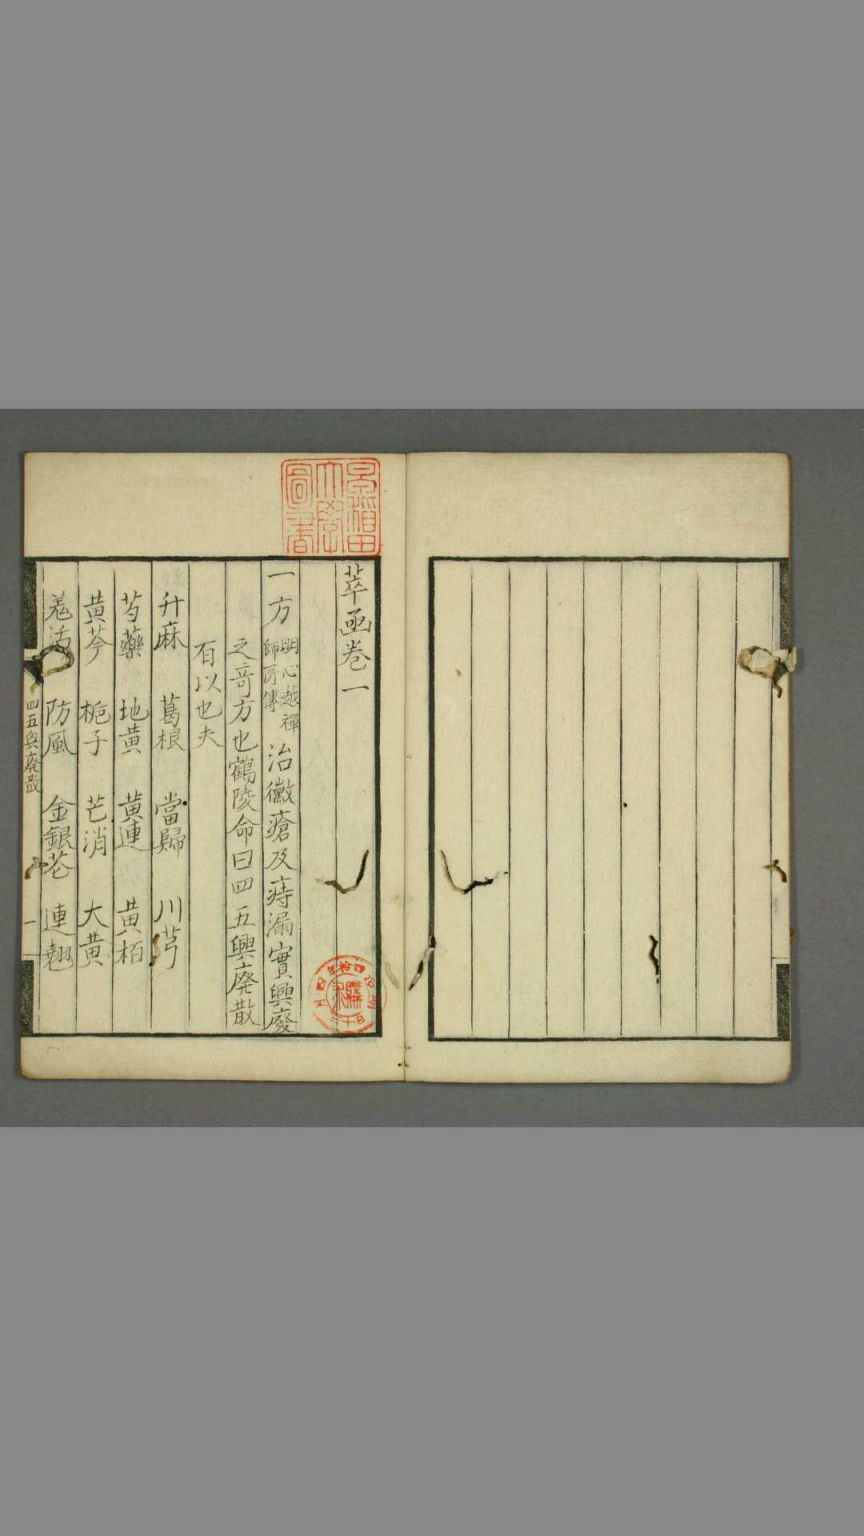 萃函卷一
一方 明心越禪師所傳 治黴瘡及痔漏實興廢
之奇方也鶴陵命曰四五興廢散
有以也夫
升麻 葛根 當歸 川芎
芍藥 地黃 黃連 黃栢
黃芩 梔子 芒消 大黃
羌活 防風 金銀花 連翹
四五興廢散 一
早稻田大學圖書